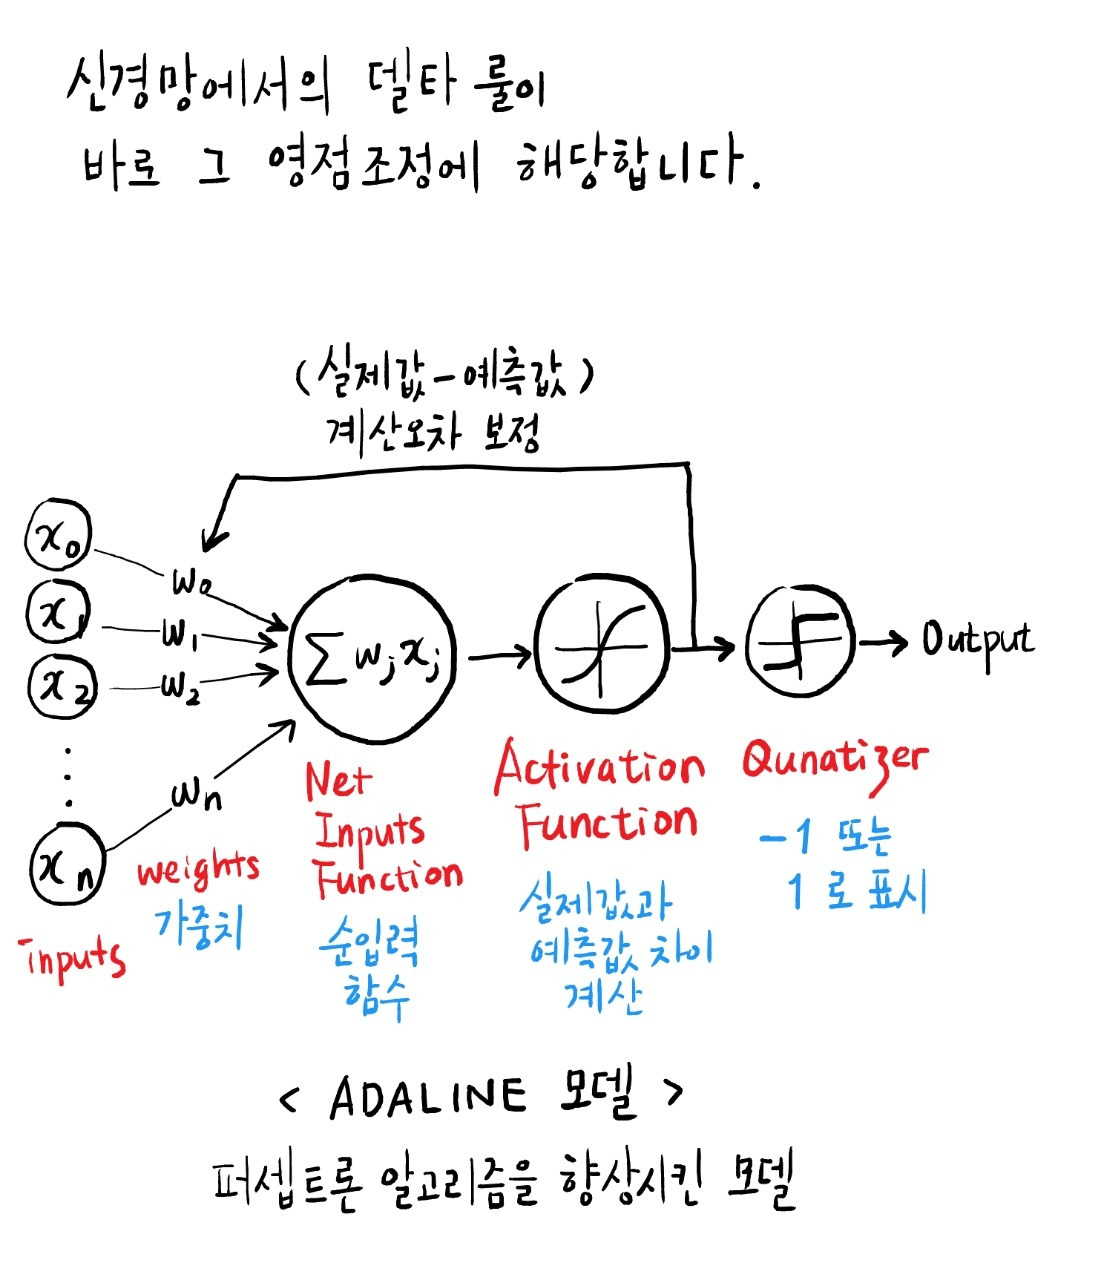 신경망에서의 델타 룰이
바로 그 영점조정에 해당합니다.
(실제값-예측값)
계산오차 보정
x₀
x₁
x₂
xₙ
w₀
w₁
w₂
wₙ
∑ wⱼxⱼ
Output
inputs
weights
가중치
Net
Inputs
Function
순입력
함수
Activation
Function
실제값과
예측값 차이
계산
Qunatizer
-1 또는
1 로 표시
< ADALINE 모델 >
퍼셉트론 알고리즘을 향상시킨 모델